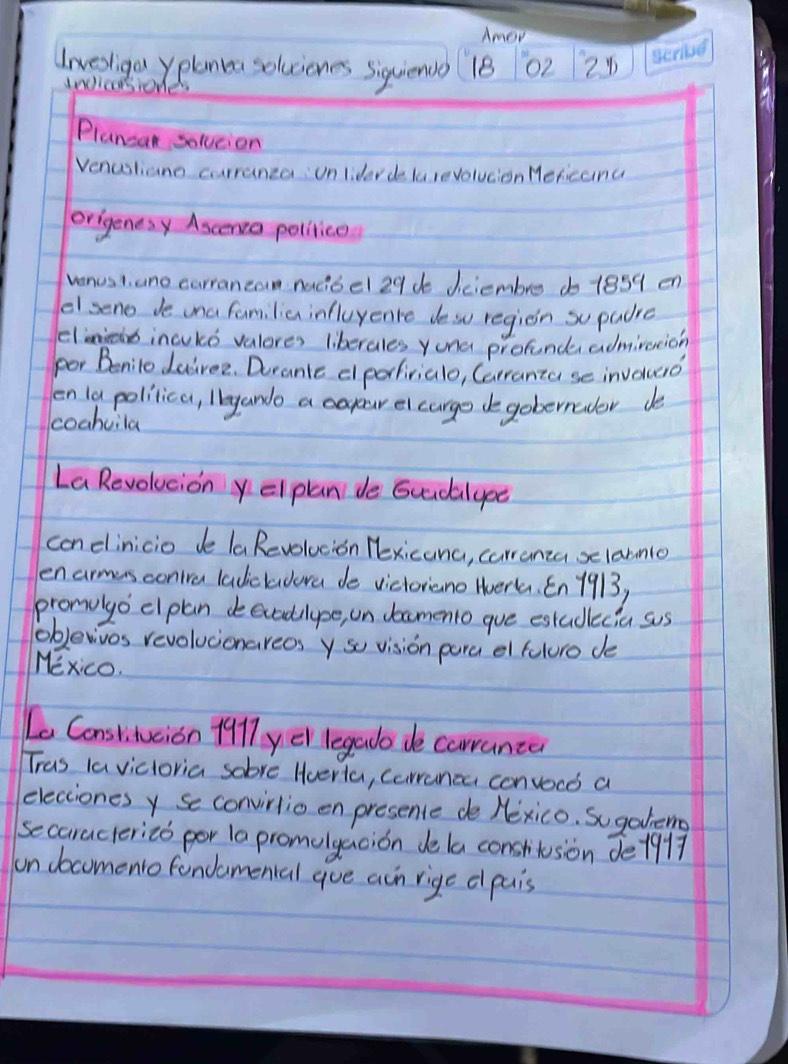 Amor
Investigar y plantea soluciones siguiendo 18 02 25 scribe
indicasiones
Plansar solucion
Venustiano carranza: un lider de la revolucion Mexicana
orígenes y Ascenza político
venustiano carranza nació el 29 de diciembre de 1859 en
el seno de una familia influyente de su región su padre
el inculcó valores liberales y una profunda admiración
por Benito Juárez. Durante el porfiriato, Carranza se involucró
en la política, llegando a ocupar el cargo de gobernador de
coahuila
La Revolución y el plan de Guadalupe
con el inicio de la Revolución Mexicana, carranza se labnto
en armas contra la dictadura de victoriano Huerta. En 1913,
promulgó el plan de Guadalupe, un documento que estadlecía sus
objetivos revolucionareos y su visión para el futuro de
México.
La Constitución 1917 y el legado de carranza
Tras la victoria sobre Huerta, carranza convocó a
elecciones y se convirtio en presente de México. Su gobierno
se caracterizó por la promulgación de la constitusión de 1917
un documento fundamental que aún rige el país